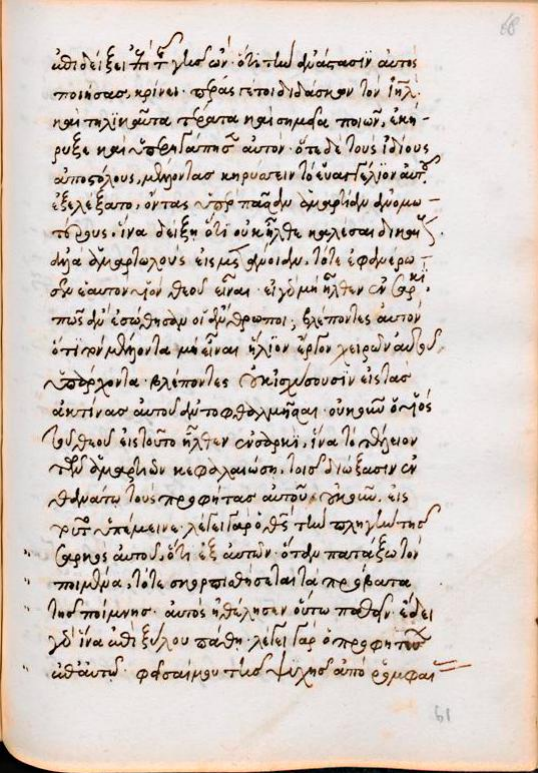 ἐπιδείξει ἐπὶ τῆς γῆς ὤν· ὅτι τὴν ἀνάστασιν αὐτὸς
ποιήσας, κρίνει· πέρας γέ τοι διδάσκων τὸν ἰηλ̅·
καὶ τηλικαῦτα τέρατα καὶ σημεῖα ποιῶν, ἐκή-
ρυξε καὶ ὑπερηγάπησ αὐτόν· ὅτε δὲ τοὺς ἰδίους
ἀποστόλους, μέλλοντας κηρύσσειν τὸ εὐαγγέλιον αὐτοῦ
ἐξελέξατο, ὄντας ὑπὲρ πᾶσαν ἁμαρτίαν ἀνομω-
τέρους, ἵνα δείξῃ ὅτι οὐκ ἦλθε καλέσαι δικαίους.
ἀλλὰ ἁμαρτωλοὺς εἰς μετάνοιαν, τότε ἐφανέρω-
σεν ἑαυτὸν υἱὸν θεοῦ εἶναι· εἰ γὰρ μὴ ἦλθεν ἐν σαρκὶ,
πῶς ἂν ἐσώθησαν οἱ ἄνθρωποι, βλέποντες αὐτὸν
ὅτι τὸν μέλλοντα μὴ εἶναι ἥλιον ἔργον χειρῶν αὐτοῦ,
ὑπάρχοντα· βλέποντες οὐκ ἰσχύσουσιν εἰς τὰς
ἀκτίνας αὐτοῦ ἀντοφθαλμῆσαι· οὐκοῦν ὁ υἱὸς
τοῦ θεοῦ εἰς τοῦτο ἦλθεν ἐν σαρκὶ, ἵνα τὸ τέλειον
τῶν ἁμαρτιῶν κεφαλαιώση, τοῖς διώξασιν ἐν
θανάτῳ τοὺς προφήτας αὐτοῦ· οὐκοῦν, εἰς
τοῦτο ὑπέμεινε· λέγει γὰρ ὁ θς̅ τὴν πληγὴν τῆς
σαρκὸς αὐτοῦ, ὅτι ἐξ αὐτῶν· ὅταν πατάξω τὸν
ποιμένα, τότε σκορπισθήσεται τὰ πρόβατα
τῆς ποίμνης· αὐτὸς ἠθέλησεν οὕτω παθεῖν· ἔδει
γὰρ ἵνα ἐπὶ ξύλου πάθη· λέγει γὰρ ὁ προφητεύων
ἐπ' αὐτῷ· φεῖσαί μου τῆς ψυχῆς ἀπὸ ῥομφαί
61